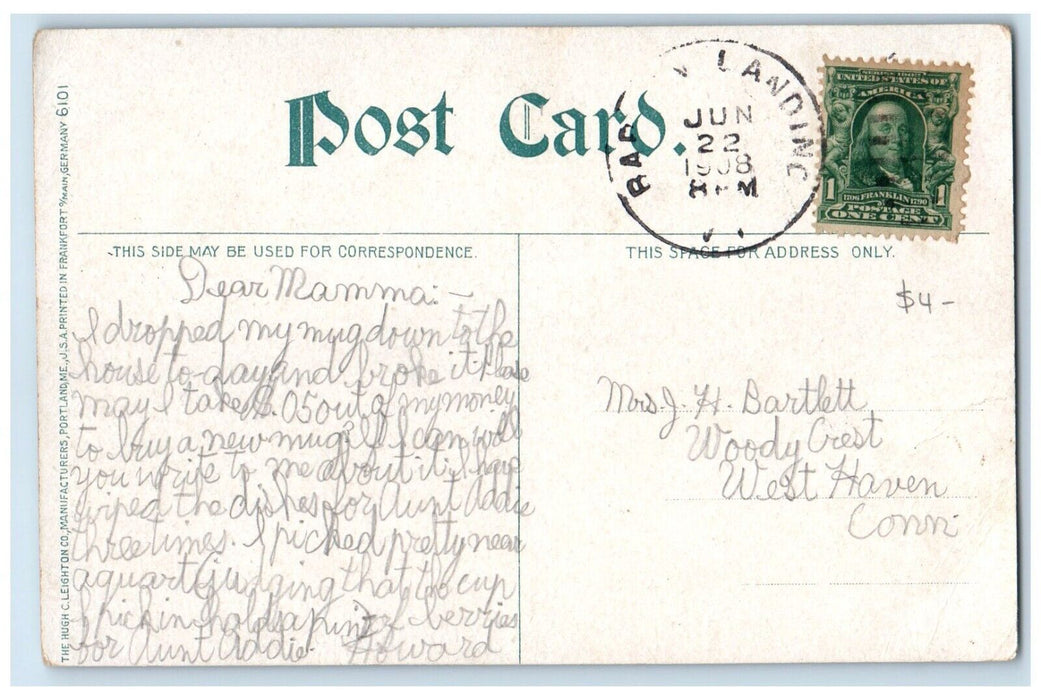 Post Card.
LANDING
JUN
22
1908
8 PM
SERIES 1902
UNITED STATES OF
AMERICA
1 1
1706 FRANKLIN 1790
POSTAGE
ONE CENT
THIS SIDE MAY BE USED FOR CORRESPONDENCE.
THIS SPACE FOR ADDRESS ONLY.
THE HUGH C. LEIGHTON CO., MANUFACTURERS, PORTLAND, ME., U.S.A. PRINTED IN FRANKFORT o/MAIN, GERMANY 6101
$4-
Dear Mamma:-
I dropped my mug down to the
house to-day and broke it Please
may I take $.05 out of my money
to buy a new mug? If I can will
you write to me about it. I have
wiped the dishes for Aunt Addie
three times. I picked pretty near
a quart (judging that the cup
I pick in holds a pint) of berries
for Aunt Addie. Howard
Mrs. J. H. Bartlett
Woody Crest
West Haven
Conn.